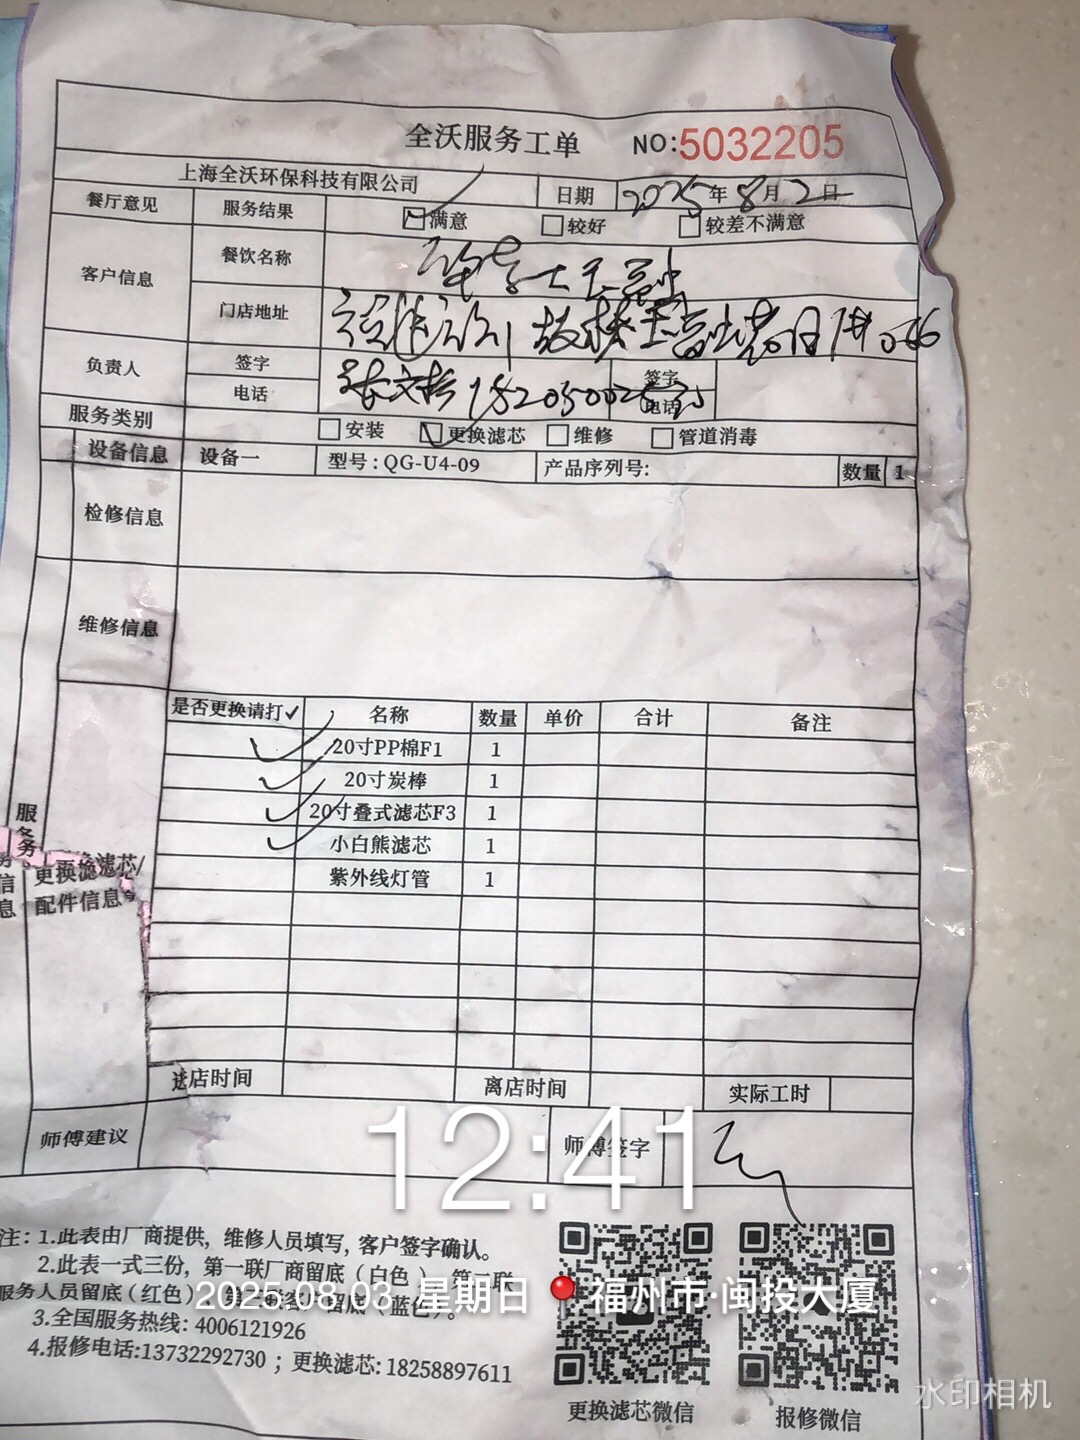 全沃服务工单 NO:5032205
上海全沃环保科技有限公司 日期 2025年8月2日
餐厅意见 服务结果 满意 较好 较差不满意
客户信息 餐饮名称
门店地址
负责人 签字 签字
电话 电话
服务类别 安装 更换滤芯 维修 管道消毒
设备信息 设备一 型号:QG-U4-09 产品序列号: 数量 1
检修信息
维修信息
是否更换请打✓ 名称 数量 单价 合计 备注
✓ 20寸PP棉F1 1
✓ 20寸炭棒 1
✓ 20寸叠式滤芯F3 1
✓ 小白熊滤芯 1
紫外线灯管 1
服务信息
更换滤芯/
配件信息
进店时间 离店时间 实际工时
师傅建议 师傅签字
12:41
注:1.此表由厂商提供,维修人员填写,客户签字确认。
2.此表一式三份,第一联厂商留底(白色),第二联
服务人员留底(红色)
2025.08.03 星期日 福州市·闽投大厦
3.全国服务热线:4006121926
4.报修电话:13732292730;更换滤芯:18258897611
更换滤芯微信 报修微信
水印相机